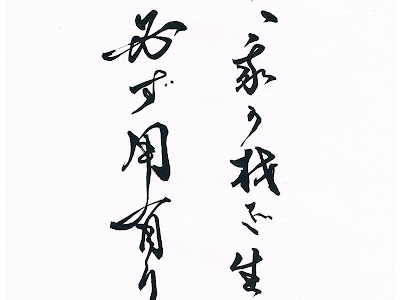 、我か材を生
必ず用有り